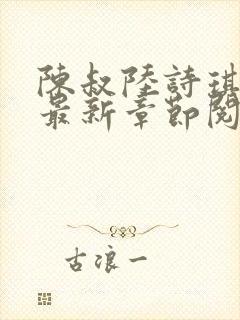 陳叔陸詩琪
最新章節閱
古浪一